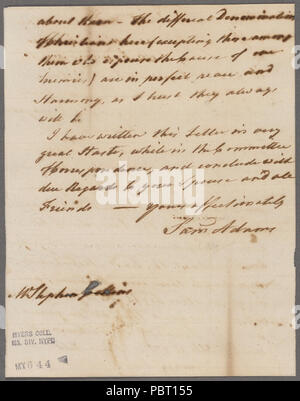 about them - The different Denominations
of Christians here (excepting those among
them who espouse the cause of our
Enemies) are in perfect peace and
Harmony, as I trust they always
will be
I have written this Letter in very
great Haste, while in the Committee
of Correspondence, and conclude with
due Regards to your Spouse and all
Friends — yours affectionately
Sam Adams
Mr Stephen Collins
MYERS COLL.
MS. DIV. NYPL
alamy
PBT155